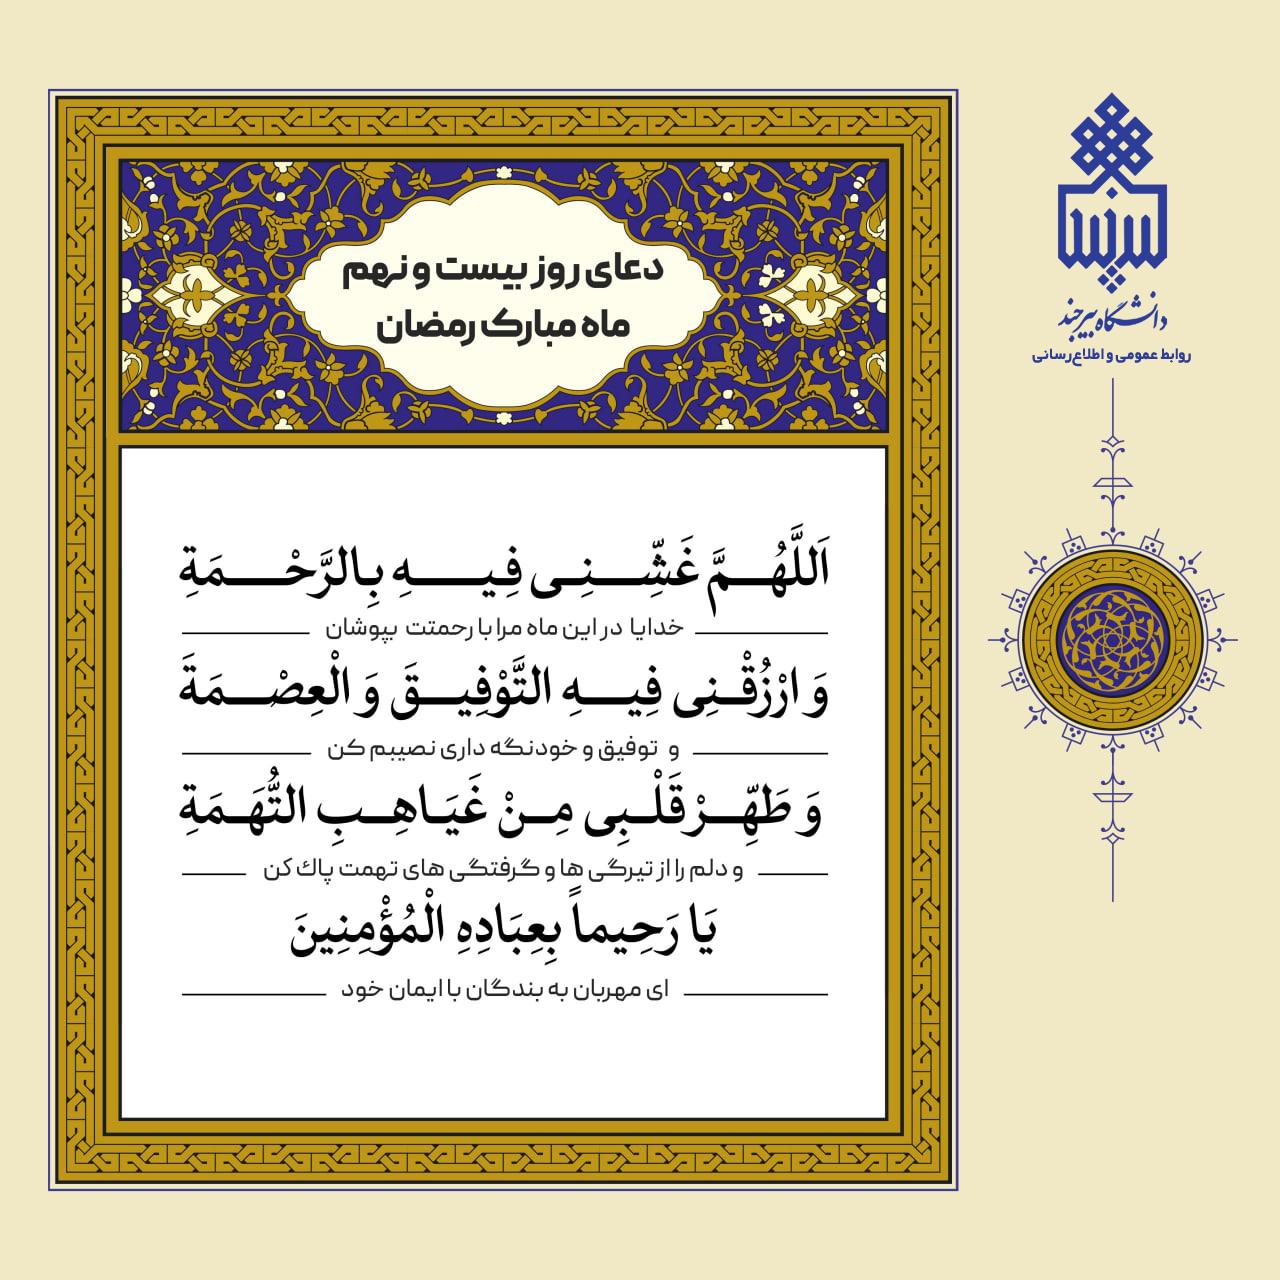 دعای روز بیست و نهم
ماه مبارک رمضان
اَللَّهُمَّ غَشِّنِی فِیهِ بِالرَّحْمَةِ
خدایا در این ماه مرا با رحمتت بپوشان
وَ ارْزُقْنِی فِیهِ التَّوْفِیقَ وَ الْعِصْمَةَ
و توفیق و خودنگه داری نصیبم کن
وَ طَهِّرْ قَلْبِی مِنْ غَیَاهِبِ التُّهَمَةِ
و دلم را از تیرگی ها و گرفتگی های تهمت پاك کن
یَا رَحِیماً بِعِبَادِهِ الْمُؤْمِنِینَ
ای مهربان به بندگان با ایمان خود
دانشگاه بیرجند
روابط عمومی و اطلاع‌رسانی